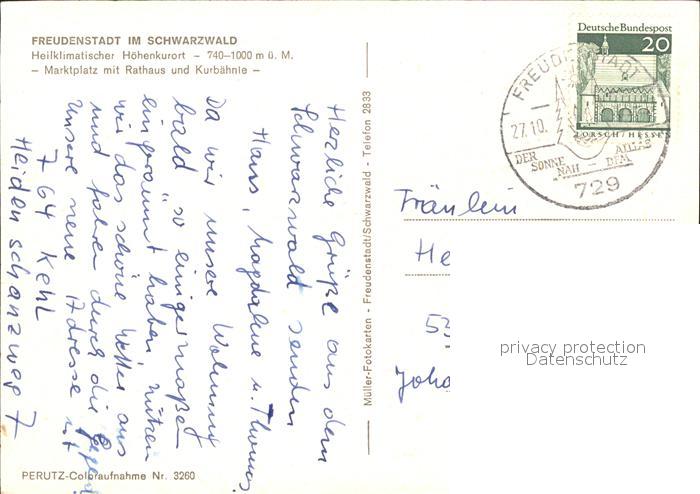 FREUDENSTADT IM SCHWARZWALD
Heilklimatischer Höhenkurort – 740–1000 m ü. M.
– Marktplatz mit Rathaus und Kurbähnle –
Herzliche Grüße aus dem
Schwarzwald senden
Hans, Magdalene u. Thomas
Da wir unsere Wohnung
bald so einigermaßen
eingeräumt haben nützen
wir das schöne Wetter aus
und fahren durch die Gegend
Unsere neue Adresse ist
7 64 Kehl
Heidenschanzweg 7
PERUTZ-Coloraufnahme Nr. 3260
Müller-Fotokarten - Freudenstadt/Schwarzwald - Telefon 2833
Deutsche Bundespost
20
LORSCH/HESSEN
FREUDENSTADT
27.10.
DER SONNE NAH – DEM ALLTAG
729
Fräulein
He
53
Joha
privacy protection
Datenschutz